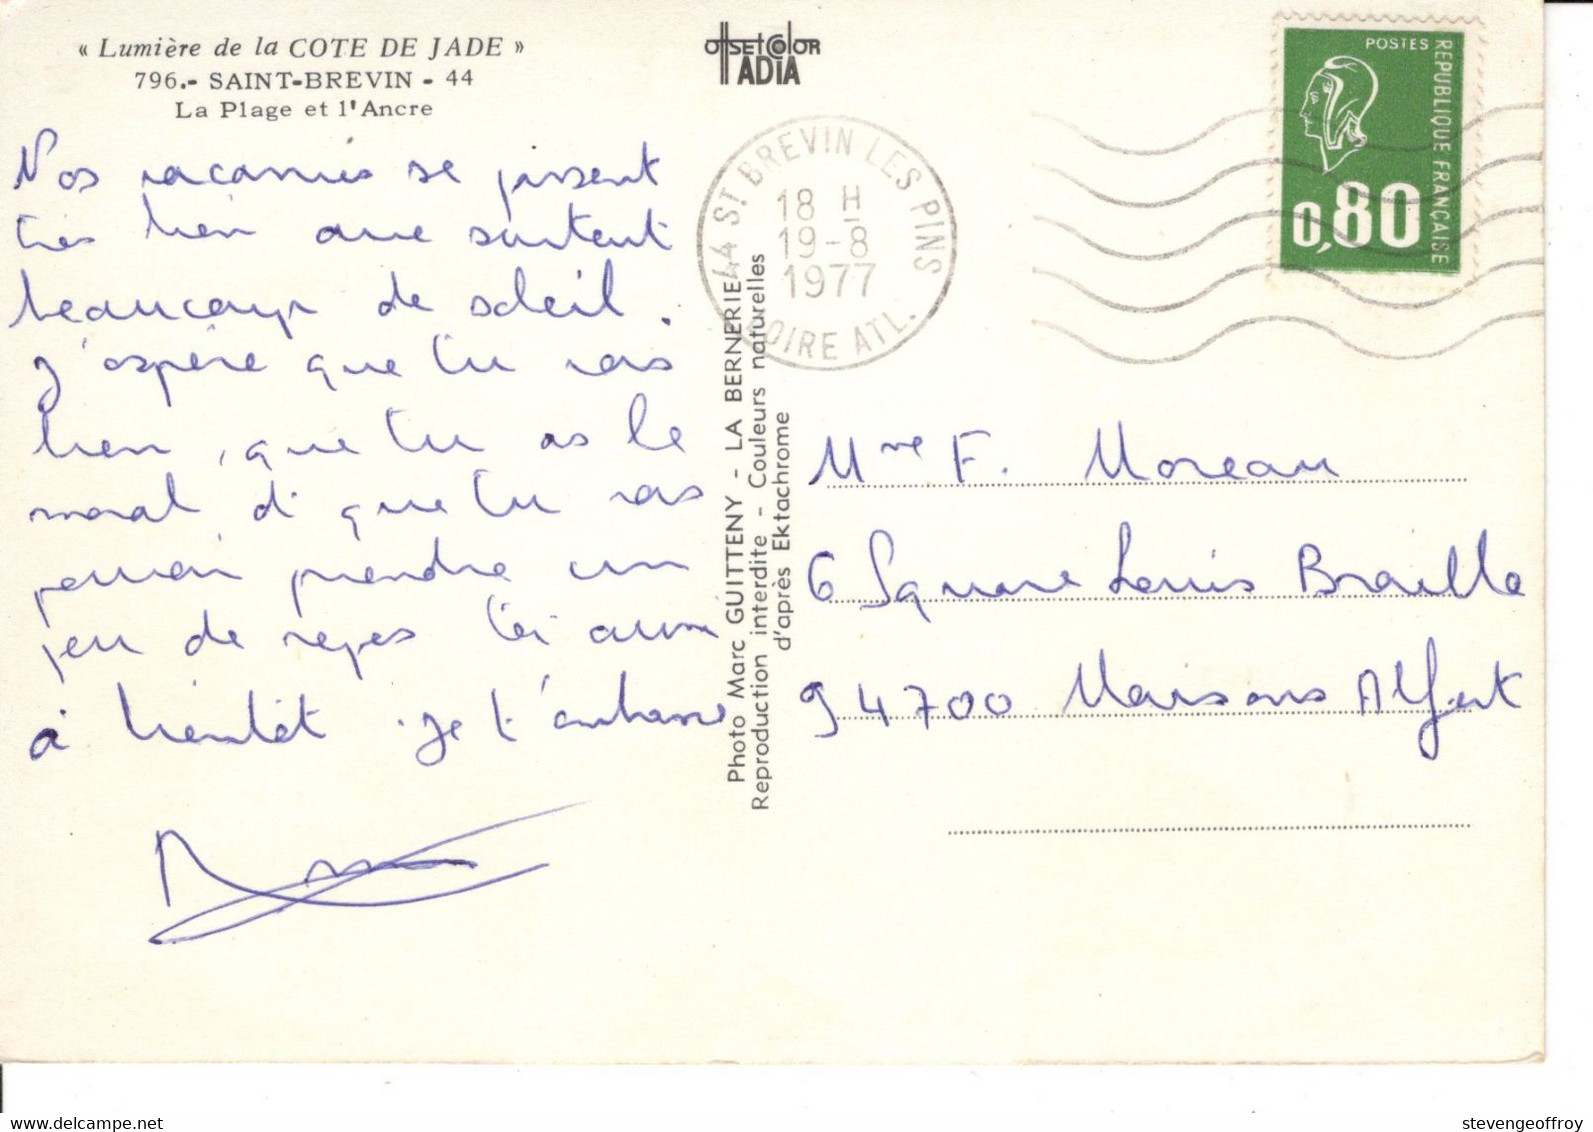 « Lumière de la COTE DE JADE »
796.- SAINT-BREVIN - 44
La Plage et l'Ancre
OffsetColor
IADIA
POSTES
REPUBLIQUE FRANÇAISE
0,80
44 ST BREVIN LES PINS
18 H
19-8
1977
LOIRE ATL.
Nos vacances se passent
très bien avec surtout
beaucoup de soleil.
J'espère que tu vas
bien, que tu as le
moral et que tu vas
pouvoir prendre un
peu de repos toi aussi
à bientôt. je t'embrasse
Photo Marc GUITTENY - LA BERNERIE
Reproduction interdite - Couleurs naturelles
d'après Ektachrome
Mme F. Moreau
6 Square Louis Braille
94700 Maisons Alfort
stevengeoffroy